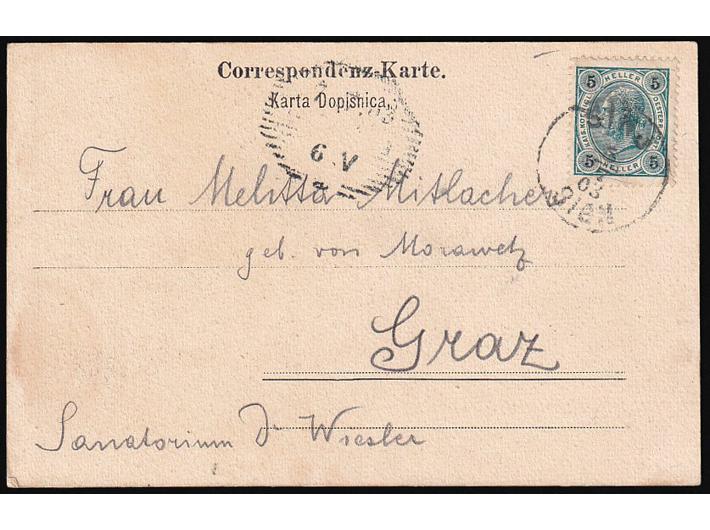 Correspondenz-Karte.
Karta Dopisnica.
5 HELLER 5
KAIS. KOENIGL. OESTERR. POST
5 HELLER 5
03
6 V
03
Frau Melitta Mitlacher
geb. von Morawetz
Graz
Sanatorium Dr Wiesler